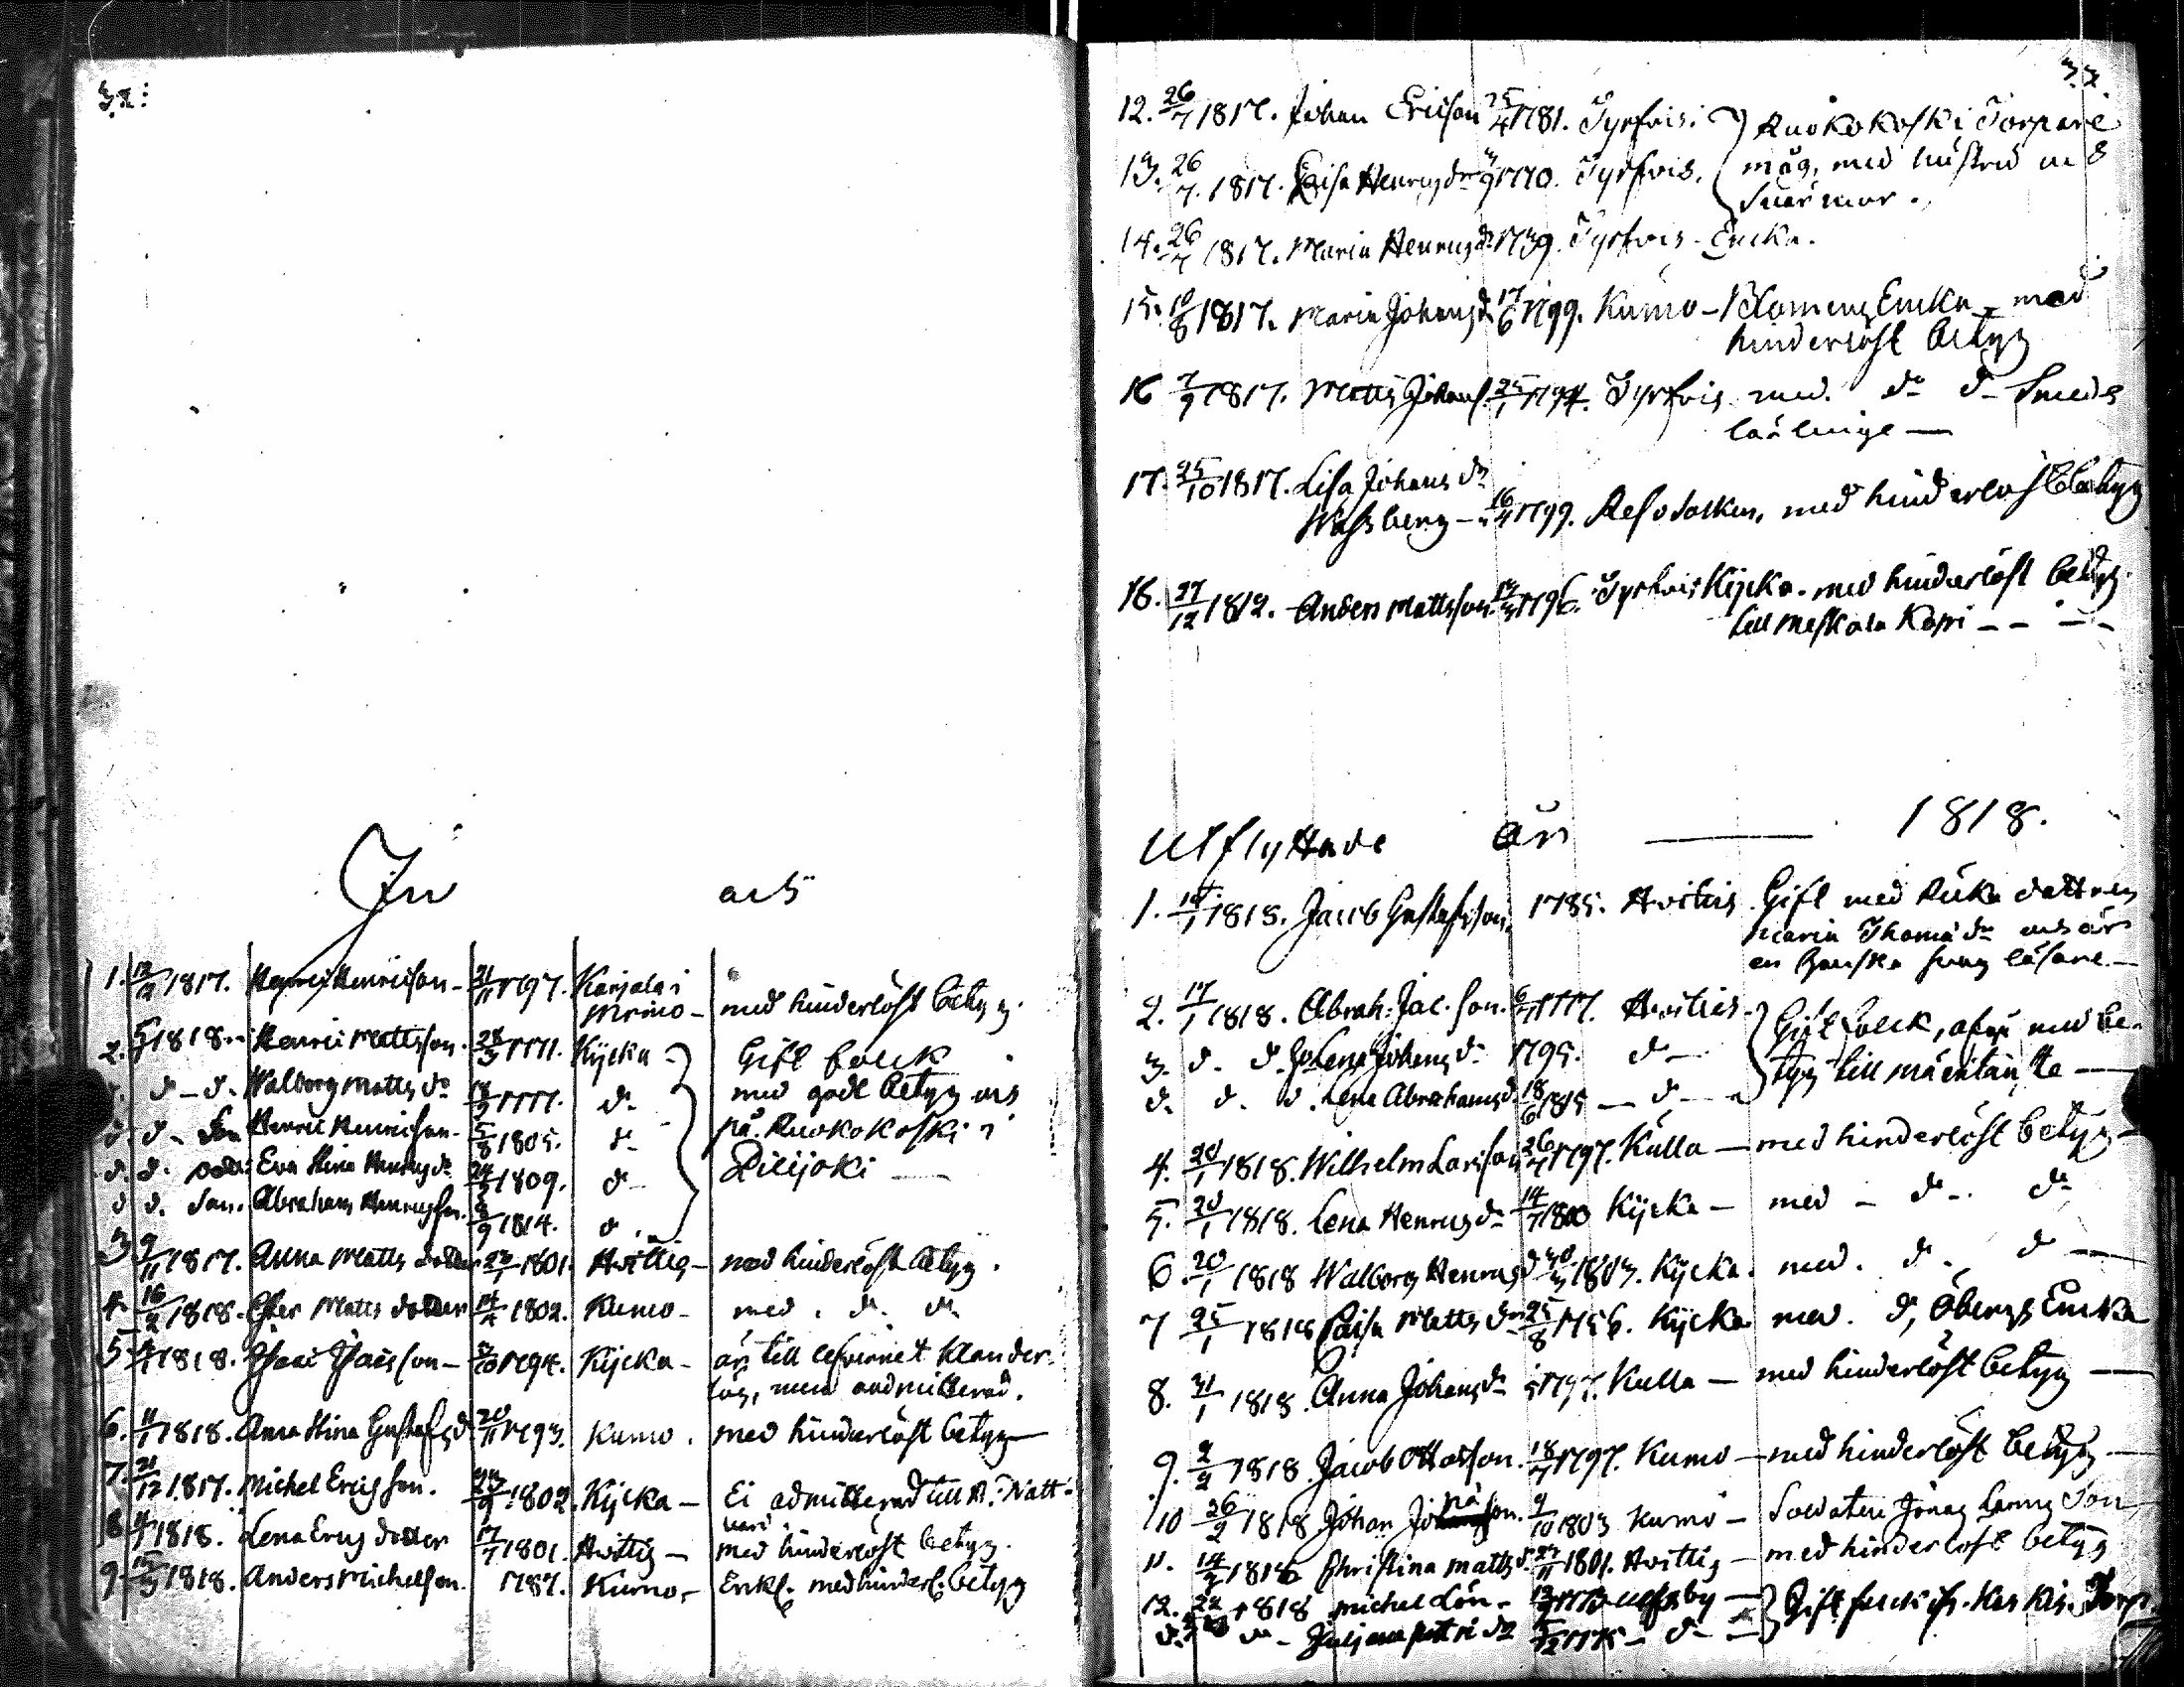 32.
In år
1. 12/12 1817. Henric Henricson - 21/11 1797. Karjala i
Mrimo - med hinderlöst betyg.
2. 5/1 1818. Henric Mattsson. 28/3 1771. Kjycka - Gift folck
d - d. Walborg Matts dr 18/2 1777. d. med godt betyg ars
d. d - Son Henric Henricson. 5/8 1805. d. på Ruokokoski i
d. d. dotter Eva Stina Henrics dr 24/2 1809. d. Dicijoki
d d. Son. Abraham Henricsson. 2/9 1814. d.
3 9/11 1817. Anna Matts dotter 23/1 1801. Hvittis - med hinderlöst betyg.
4. 16/2 1818. Ester Matts dotter 14/4 1802. Kumo - med. d. d.
5. 4/1 1818. Isaac Isacsson - 3/10 1794. Kjycka - är till lefvernet klander
lös, men oadmitterad.
6. 11/1 1818. Anna Stina Gustafs d. 20/11 1793. Kumo. med hinderlöst betyg
7. 21/12 1817. Michel Ericsson. 23/9 1802. Kjycka - Ei admitterad till H. Natt-
vard.
8 4/1 1818. Lena Erics dotter 17/7 1801. Hvittis - med hinderlöst betyg.
9. 15/3 1818. Anders Michelson. 1787. Kumo - Enkl. med hinderl. betyg
33.
12. 26/7 1817. Johan Ericson 25/4 1781. Tyrfvis. Ruokokoski Torpare
13. 26/7. 1817. Caisa Henrics dr 4/9 1770. Tyrfvis. måg, med hustru och
Svärmor.
14. 26/7 1817. Maria Henrics d. 1739. Tyrfvis - Encka.
15. 10/8 1817. Maria Johans d. 17/6 1799. Kumo - Blomens Encka - med
hinderlöst betyg
16 7/9 1817. Matts Johans. 25/1 1794. Tyrfvis med. do d - Smeds
lärlinge -
17. 25/10 1817. Lisa Johans dr
Wassberg - 16/4 1799. Reso socken, med hinderlöst betyg
18. 27/12 1812. Anders Mattsson. 1796. Tyrfvis Kjycka. med hinderlöst betyg.
till Meskala Kapri - - - -
Utflyttade År 1818.
1. 14/1 1818. Jacob Gustafsson. 1785. Hvittis. Gift med Ruka dottren
Maria Thoma dr och är
en ganska svag läsare. -
2. 17/1 1818. Abrah: Jac. son. 6/7 1777. Hvittis. Gift folck, afsig med be-
3. d. d. Lena Johans dr 1795. d - tyg till
d. d. d. Lena Abrahams d. 18/6 1815 - d -
4. 20/1 1818. Wilhelm Larsson 26/4 1797. Kulla - med hinderlöst betyg -
5. 20/1 1818. Lena Henrics dr 14/7 1800 Kjycka - med - d -. do
6. 20/1 1818 Walborg Henrics d 1803. Kjycka. med. d. d -
7 25/1 1818 Caisa Matts dr 25/8 1756. Kjycka med. d, Öbergs Encka
8. 31/1 1818. Anna Johans dr 1797. Kulla - med hinderlöst betyg -
9. 2/2 1818. Jacob Ottosson. 18/7 1797. Kumo - med hinderlöst betyg -
10 26/2 1818 Johan Jonason. 9/10 1803 Kumo - Soldaten Jonas Lanns Son
11. 14/3 1818 Christina Matts d. 27/11 1801. Hvittis - med hinderlöst betyg
12. 22 1818 Michel Lön - 1773 Ulfsby - Gift folck Torp
d. do - Juliana Petri dr 1775 - d -